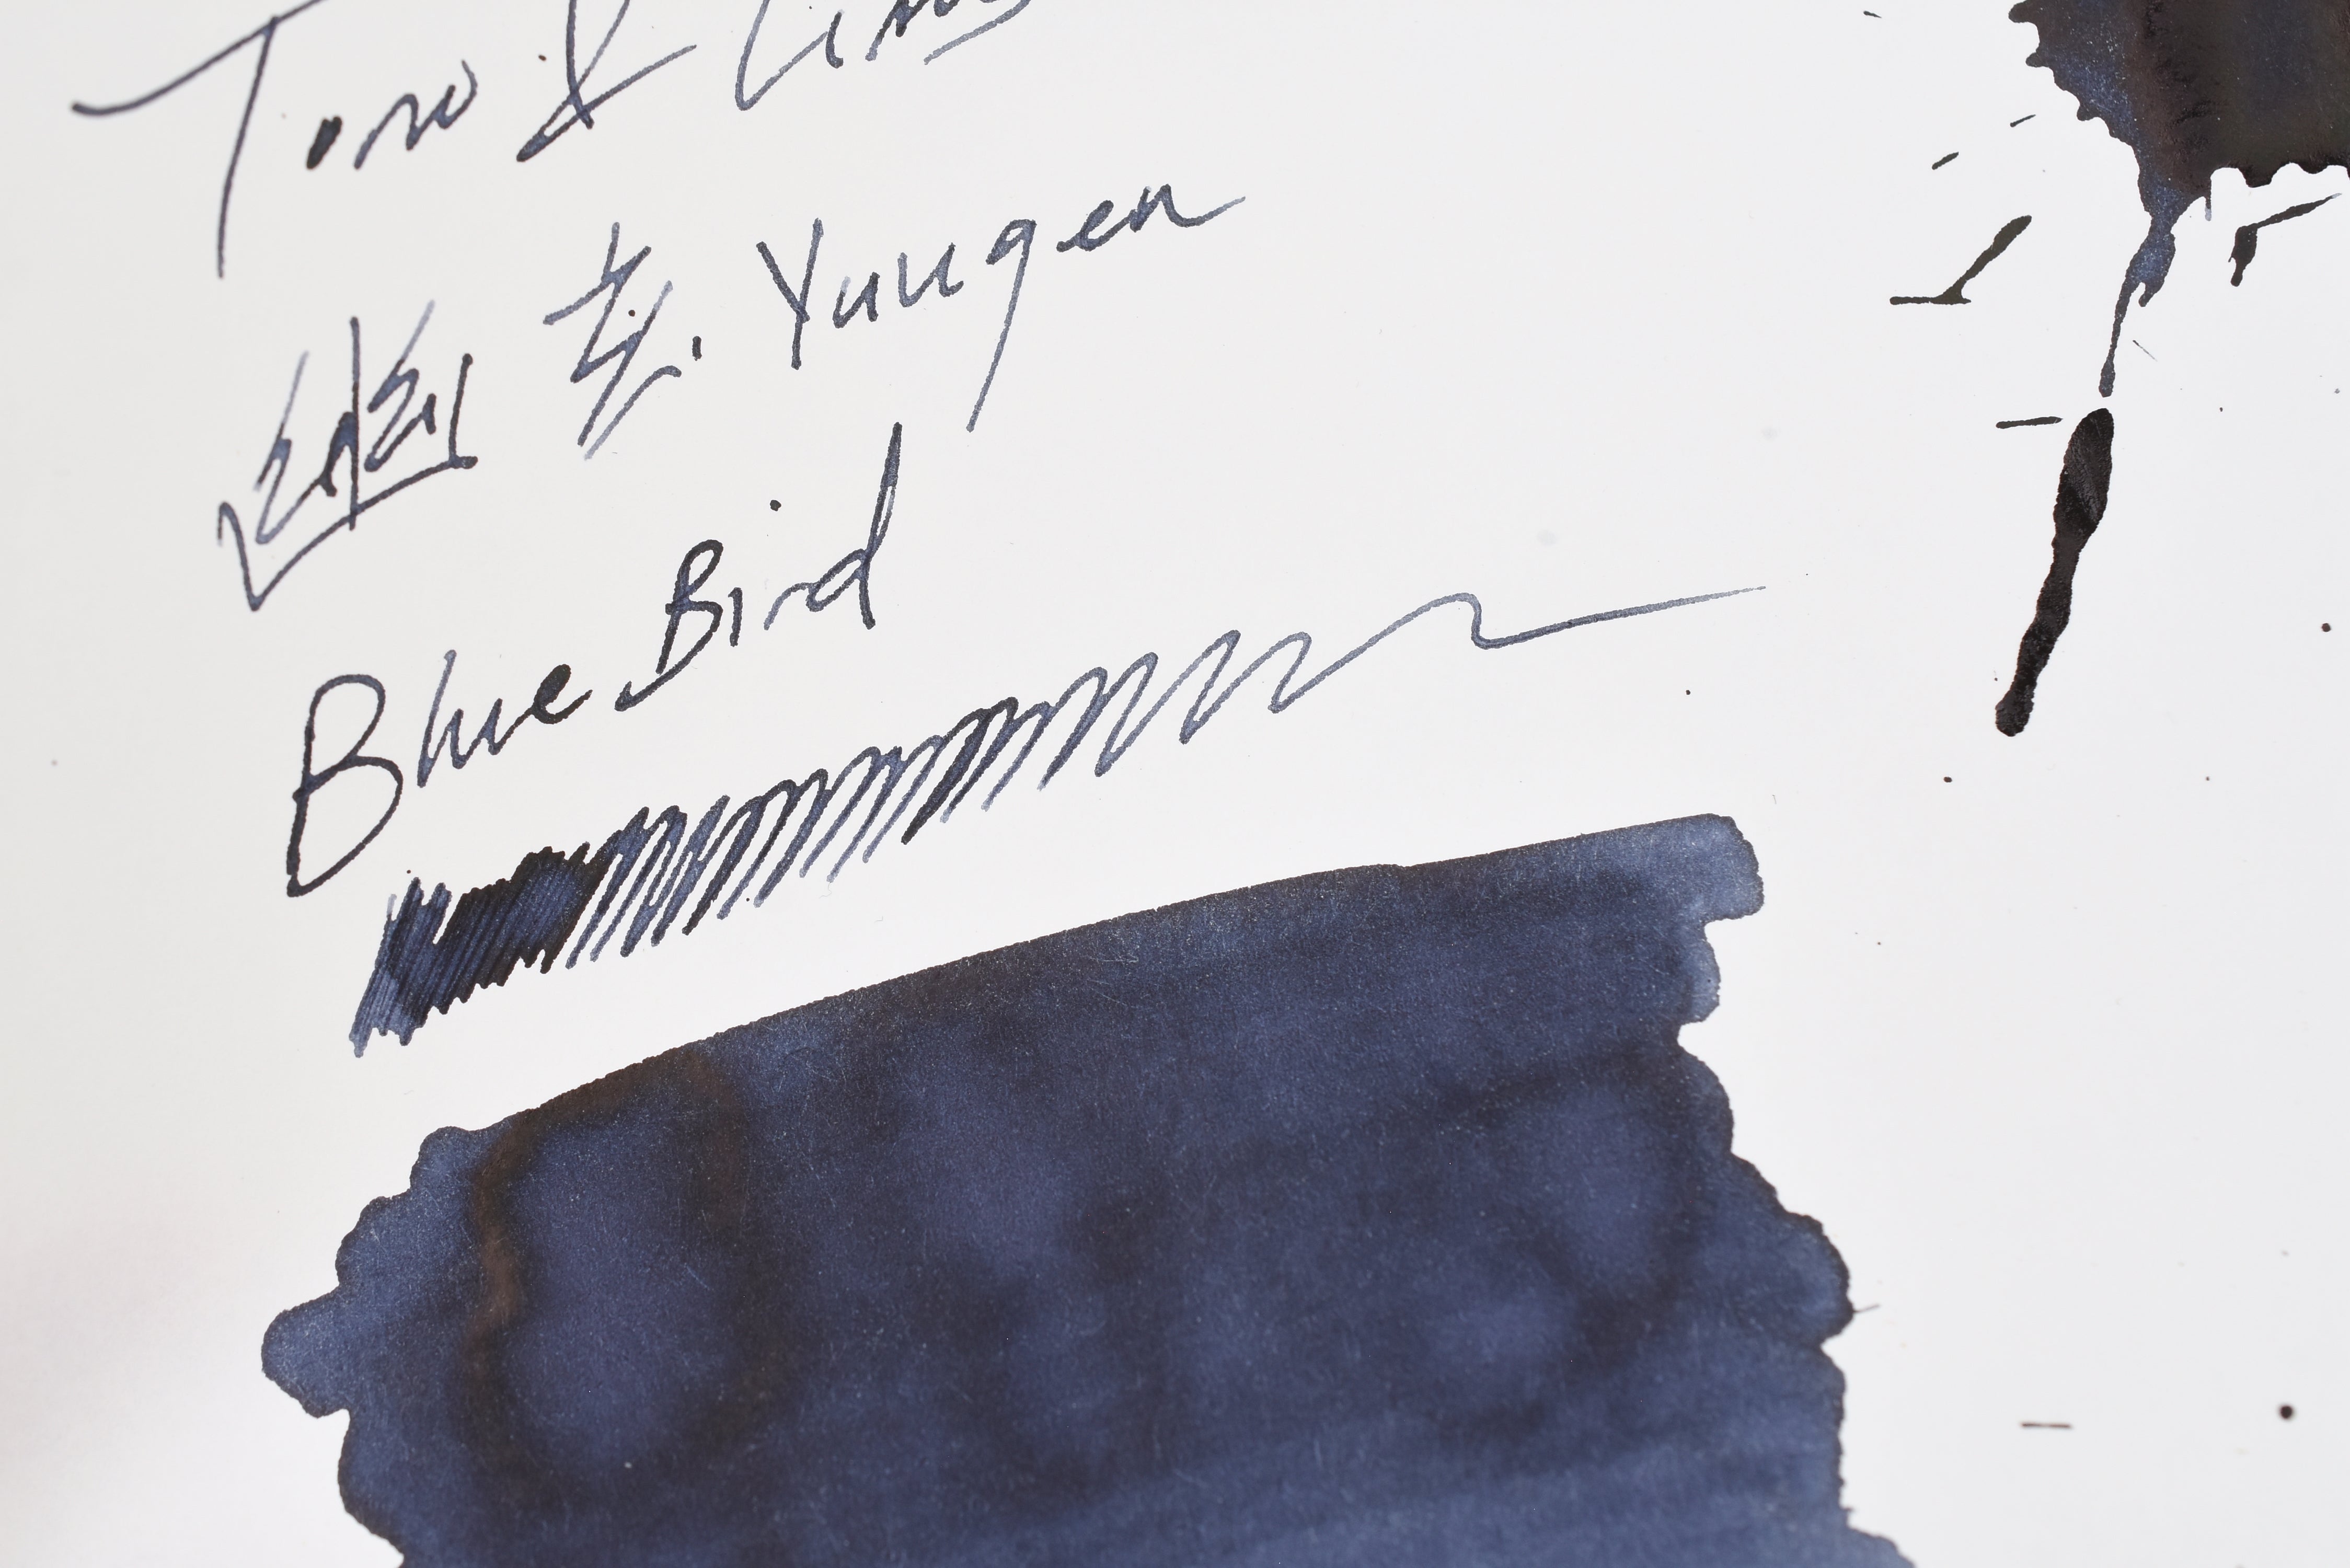 Tono &
幽玄. Yuugen
Blue Bird